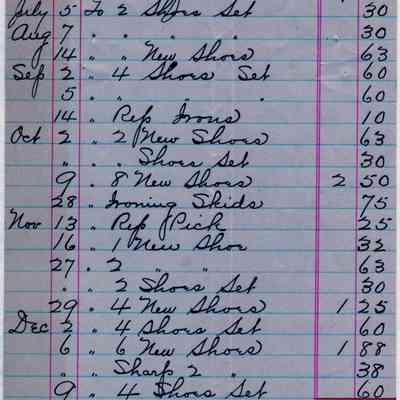 July 5 To 2 Shoes Set 30
Aug 7 " " " " 30
" 14 " " New Shoes 63
Sep 2 " 4 Shoes Set 60
5 " " " 60
14 " Rep Irons 10
Oct 2 " 2 New Shoes 63
" " " Shoes Set 30
9 " 8 New Shoes 2 50
28 " Ironing Skids 75
Nov 13 " Rep Pick 25
16 " 1 New Shoe 32
27 " 2 " " 63
" " 2 Shoes Set 30
29 " 4 New Shoes 1 25
Dec 2 " 4 Shoes Set 60
6 " 6 New Shoes 1 88
" " Sharp 2 " 38
9 " 4 Shoes Set 60